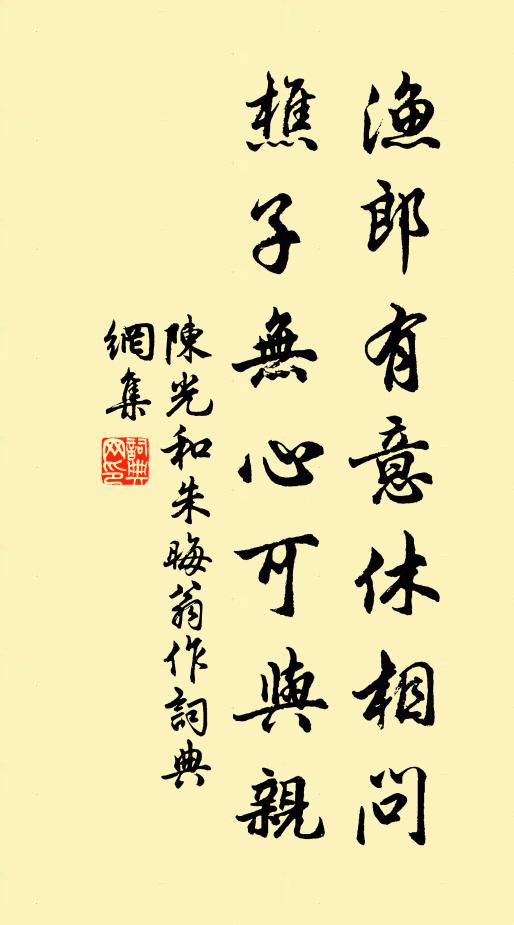 漁郎有意休相問
樵子無心可與親
陳光和朱晦翁作詞典
網集
詞典網印